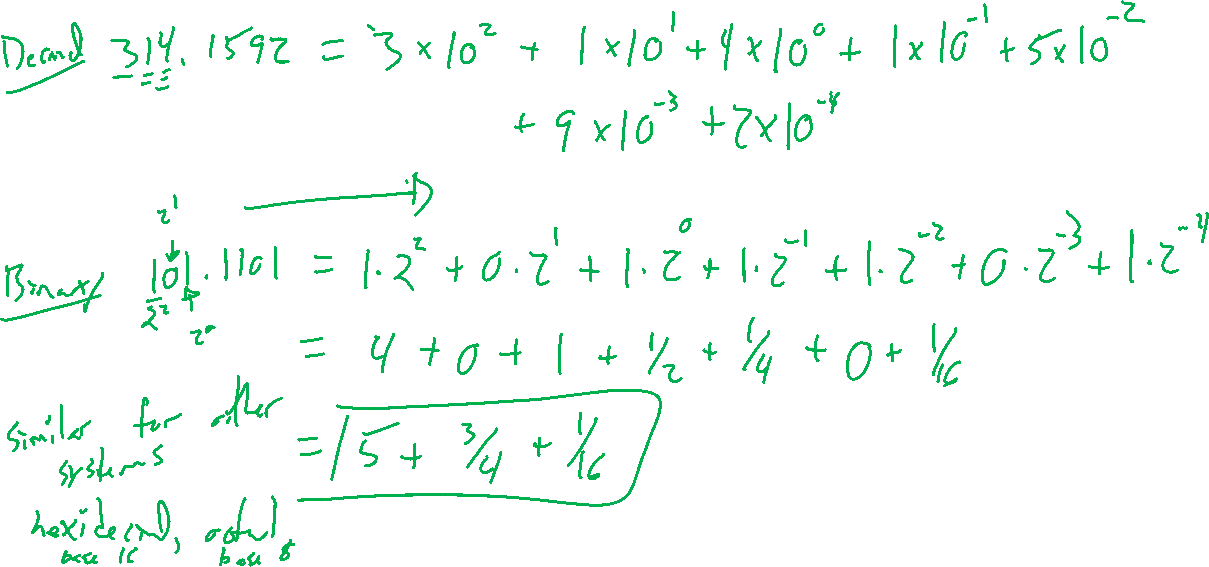 Decimal 314.1592 = 3 × 10² + 1 × 10¹ + 4 × 10⁰ + 1 × 10⁻¹ + 5 × 10⁻²
+ 9 × 10⁻³ + 2 × 10⁻⁴
2¹
Binary 101.1101 = 1·2² + 0·2¹ + 1·2⁰ + 1·2⁻¹ + 1·2⁻² + 0·2⁻³ + 1·2⁻⁴
2² 2⁰
= 4 + 0 + 1 + 1/2 + 1/4 + 0 + 1/16
similar for other
systems
= 5 + 3/4 + 1/16
hexidecimal, octal
base 16 base 8